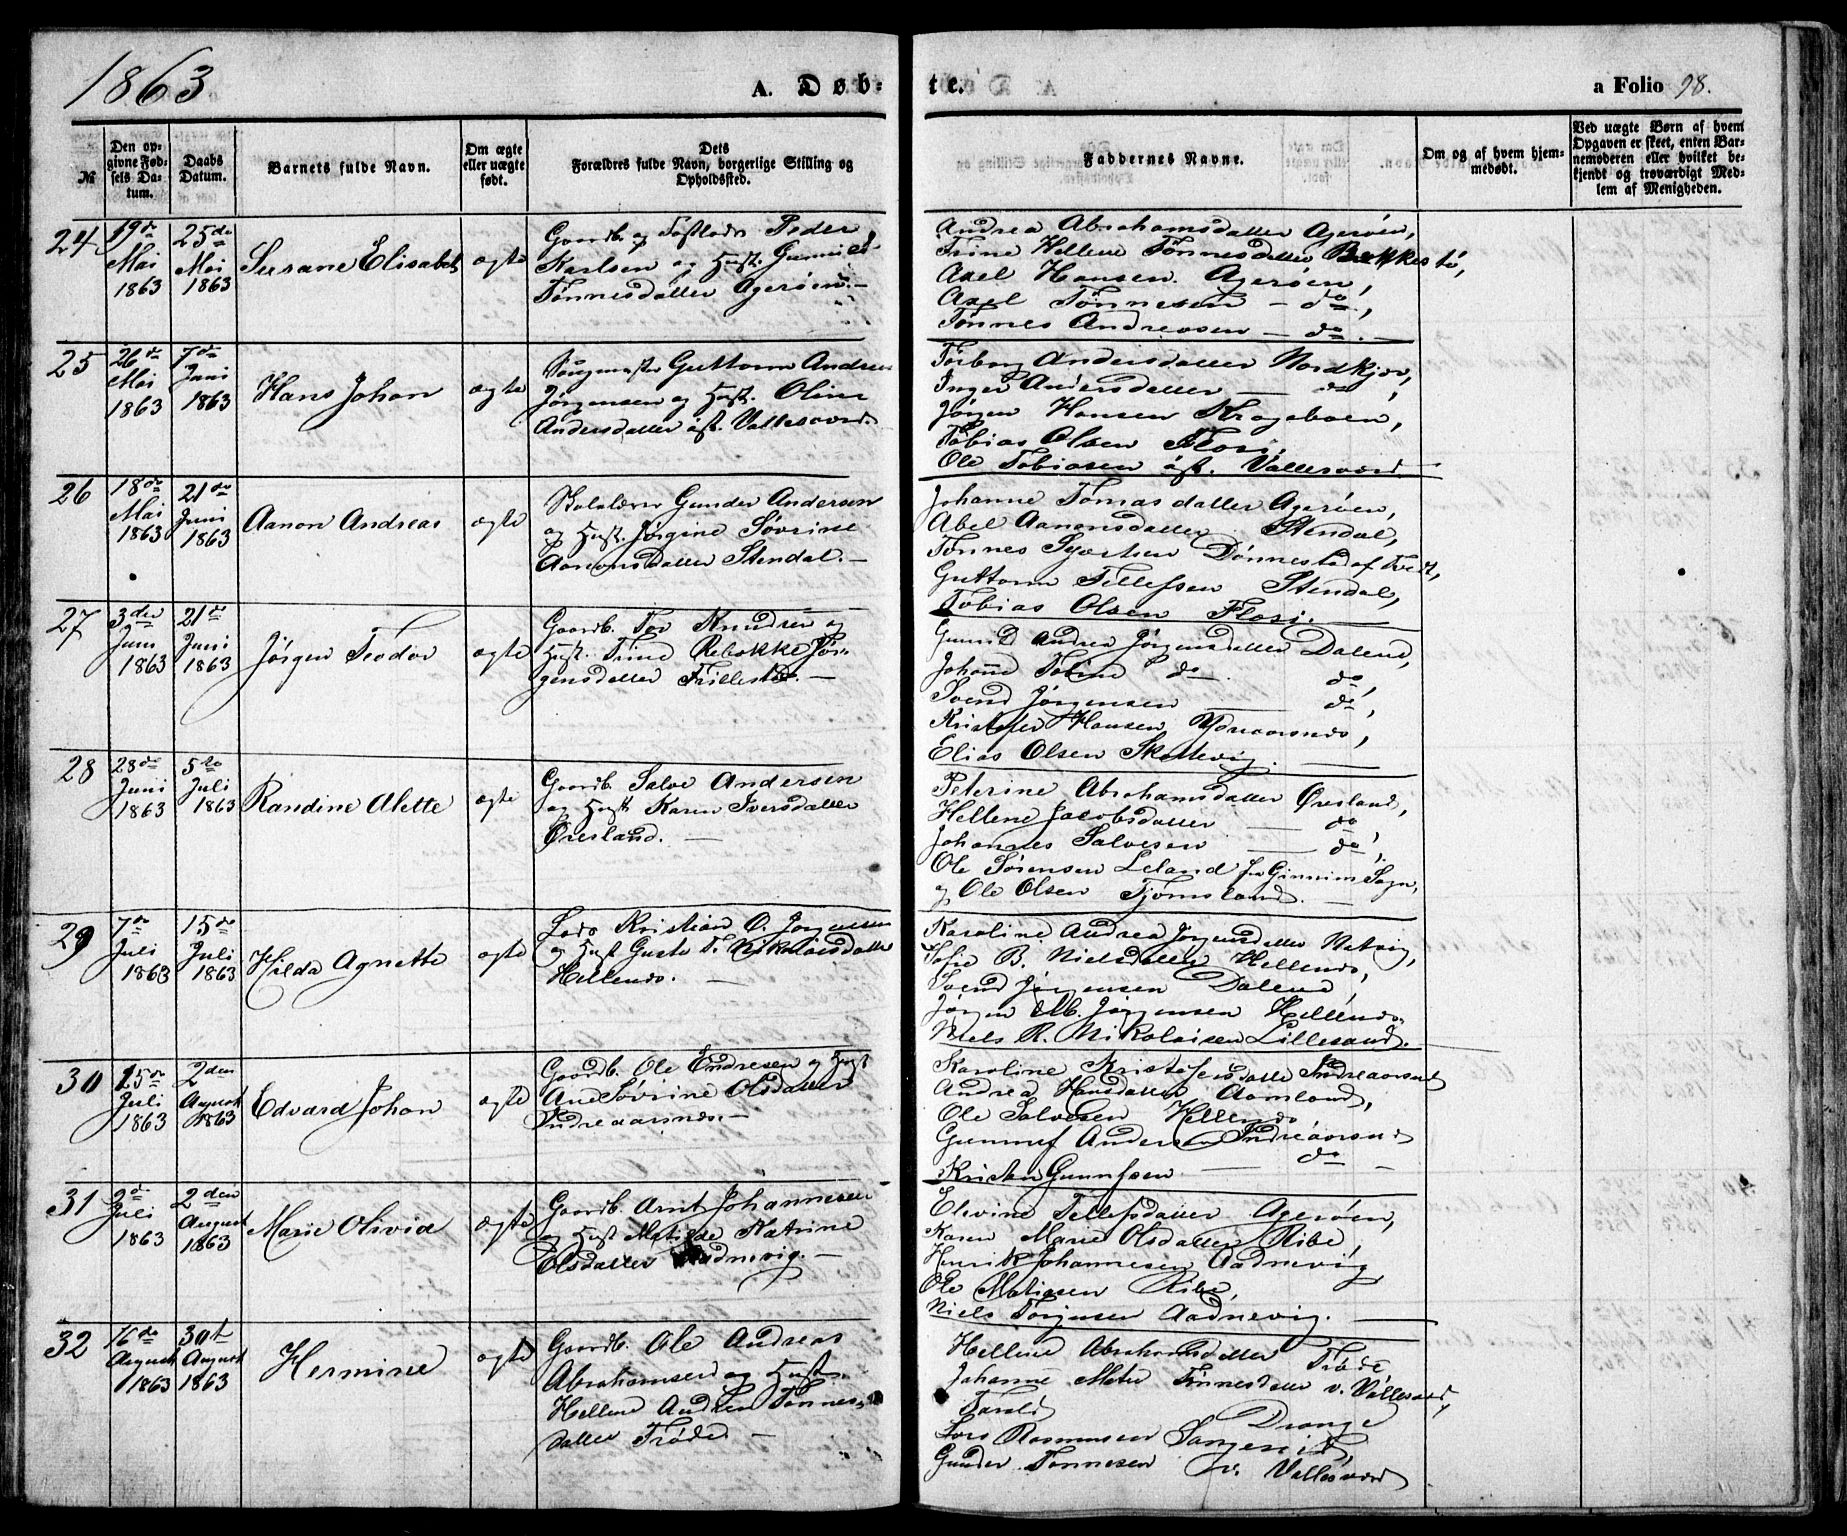 1863
A. Døb-
te.
a Folio 98.
№
Den op-
givne Fød-
sels Da-
tum.
Daabs
Datum.
Barnets fulde Navn.
Om ægte
eller uægte
født.
Dets
Forældres fulde Navn, borgerlige Stilling og
Opholdssted.
Faddernes Navne.
Om og af hvem hjem-
medøbt.
Ved uægte Børn af hvem
Opgaven er skeet, enten Bar-
nemoderen eller hvilket be-
kjendt og troværdigt Med-
lem af Menigheden.
24
19de
Mai
1863
25de
Mai
1863
Susane Elisabet
ægte
Gaardb. og Peder
Karlsen og Hust. Gunnild
Tønnesdatter Agerøen.—
Andrea Abrahamsdatter Agerøen,
Trine Hellene Tønnesdatter Brækkestø,
Axel Hansen Agerøen,
Axel Tønnesen — do,
Tønnes Andreasen — do.—
25
26de
Mai
1863
7de
Juni
1863
Hans Johan
ægte
Guttorm Andreas
Jørgensen og Hust. Oline
Andersdatter øst. Vallesværd.
Torborg Andersdatter Nordkjær,
Inger Andersdatter — do,
Jørgen Hansen Krageboen,
Tobias Olsen Flosi,
Ole Tobiasen øst. Vallesværd
26
18de
Mai
1863
21de
Juni
1863
Aanon Andreas
ægte
Skolelærer Gunder Andersen
og Hust. Jørgine Søvrine
Aanonsdatter Stendal.—
Johanne Tomasdatter Agerøen,
Abel Aanonsdatter Stendal,
Tønnes Dønnestad af Tvedt,
Guttorm Tellefsen Stendal,
Tobias Olsen Flosi.—
27
3den
Juni
1863
21de
Juni
1863
Jørgen Teodor
ægte
Gaardb. Tov Knudsen og
Hust. Trine Rebekke Jør-
gensdatter Trillestø.—
Gunild Andrea Jørgensdatter Dalene,
Johanne Tobine do do,
Svend Jørgensen — do,
Kristofer Hansen
Elias Olsen Skallevig.
28
28de
Juni
1863
5te
Juli
1863
Randine Alette
ægte
Gaardb. Salve Andersen
og Hust. Karen Iversdatter
Øresland.—
Peterine Abrahamsdatter Øresland,
Hellene Jacobsdatter — do
Johannes Salvesen — do,
Ole Sørensen Leland fra Ginnim Sogn,
og Ole Olsen Tjømsland.
29
7de
Juli
1863
15de
Juli
1863
Hilda Agnette
ægte
Lods Kristian O. Jørgensen
og Hust Gusta T. Nikolaisdatter
Hellenes.—
Karoline Andrea Jørgensdatter Natvig,
Sofie B. Nielsdatter Hellenes,
Svend Jørgensen Dalene,
Jørgen M. Jørgensen Hellenes
Niels R. Nikolaisen Lillesand.
30
15de
Juli
1863
2den
August
1863
Edvard Johan
ægte
Gaardb. Ole Endresen og Hust
Ane Søvrine Olsdatter
Indreaarsnes.—
Karoline Kristofersdatter Indreaarsnes
Andrea Hansdatter Aamland,
Ole Salvesen Hellenes
Gunnuf Andersen Indreaarsnes
Kristen Gunnufsen — do —
31
2de
Juli
1863
2den
August
1863
Marie Olivia
ægte
Gaardb. Arnt Johannesen
og Hust Matilde Katrine
Olsdatter Aadnevig.—
Elevine Tellefsdatter Agerøen,
Karen Marie Olsdatter Ribe,
Henrik Johannesen Aadnevig,
Ole Matiasen Ribe,
Niels Torjusen Aadnevig.
32
16de
August
1863
30te
August
1863
Hermine
ægte
Gaardb. Ole Andreas
Abrahamsen og Hust.
Hellene Andrea Tønnes-
datter Trøde—
Hellene Abrahamsdatter Trøde
Johanne Mater Tønnesdatter v. Vallesværd,
Tarald Drange
Lars Rasmussen
Gunder Tønnesen v. Vallesværd